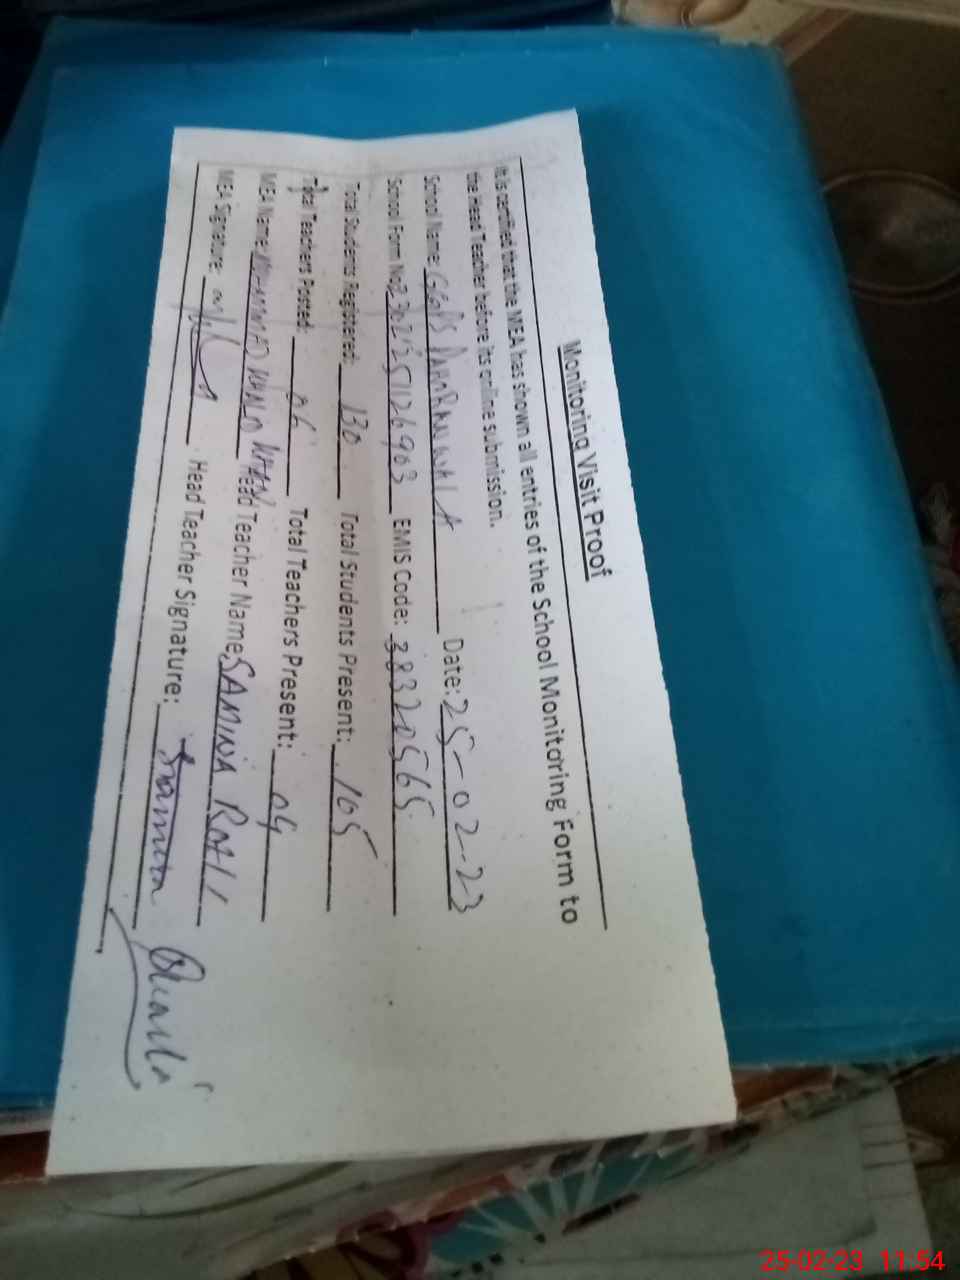 Monitoring Visit Proof
It is certified that the MEA has shown all entries of the School Monitoring Form to
the Head Teacher before its online submission.
School Name: GGPS DAHRANWALA Date: 25-02-23
School Form No. EMIS Code: 38320565
Total Students Registered: 130 Total Students Present: 105
Total Teachers Posted: 06 Total Teachers Present: 04
MEA Name: MUHAMMAD KHALID KHAN Head Teacher Name: SAMINA
MEA Signature: Head Teacher Signature: Samina
25-02-23 11:54